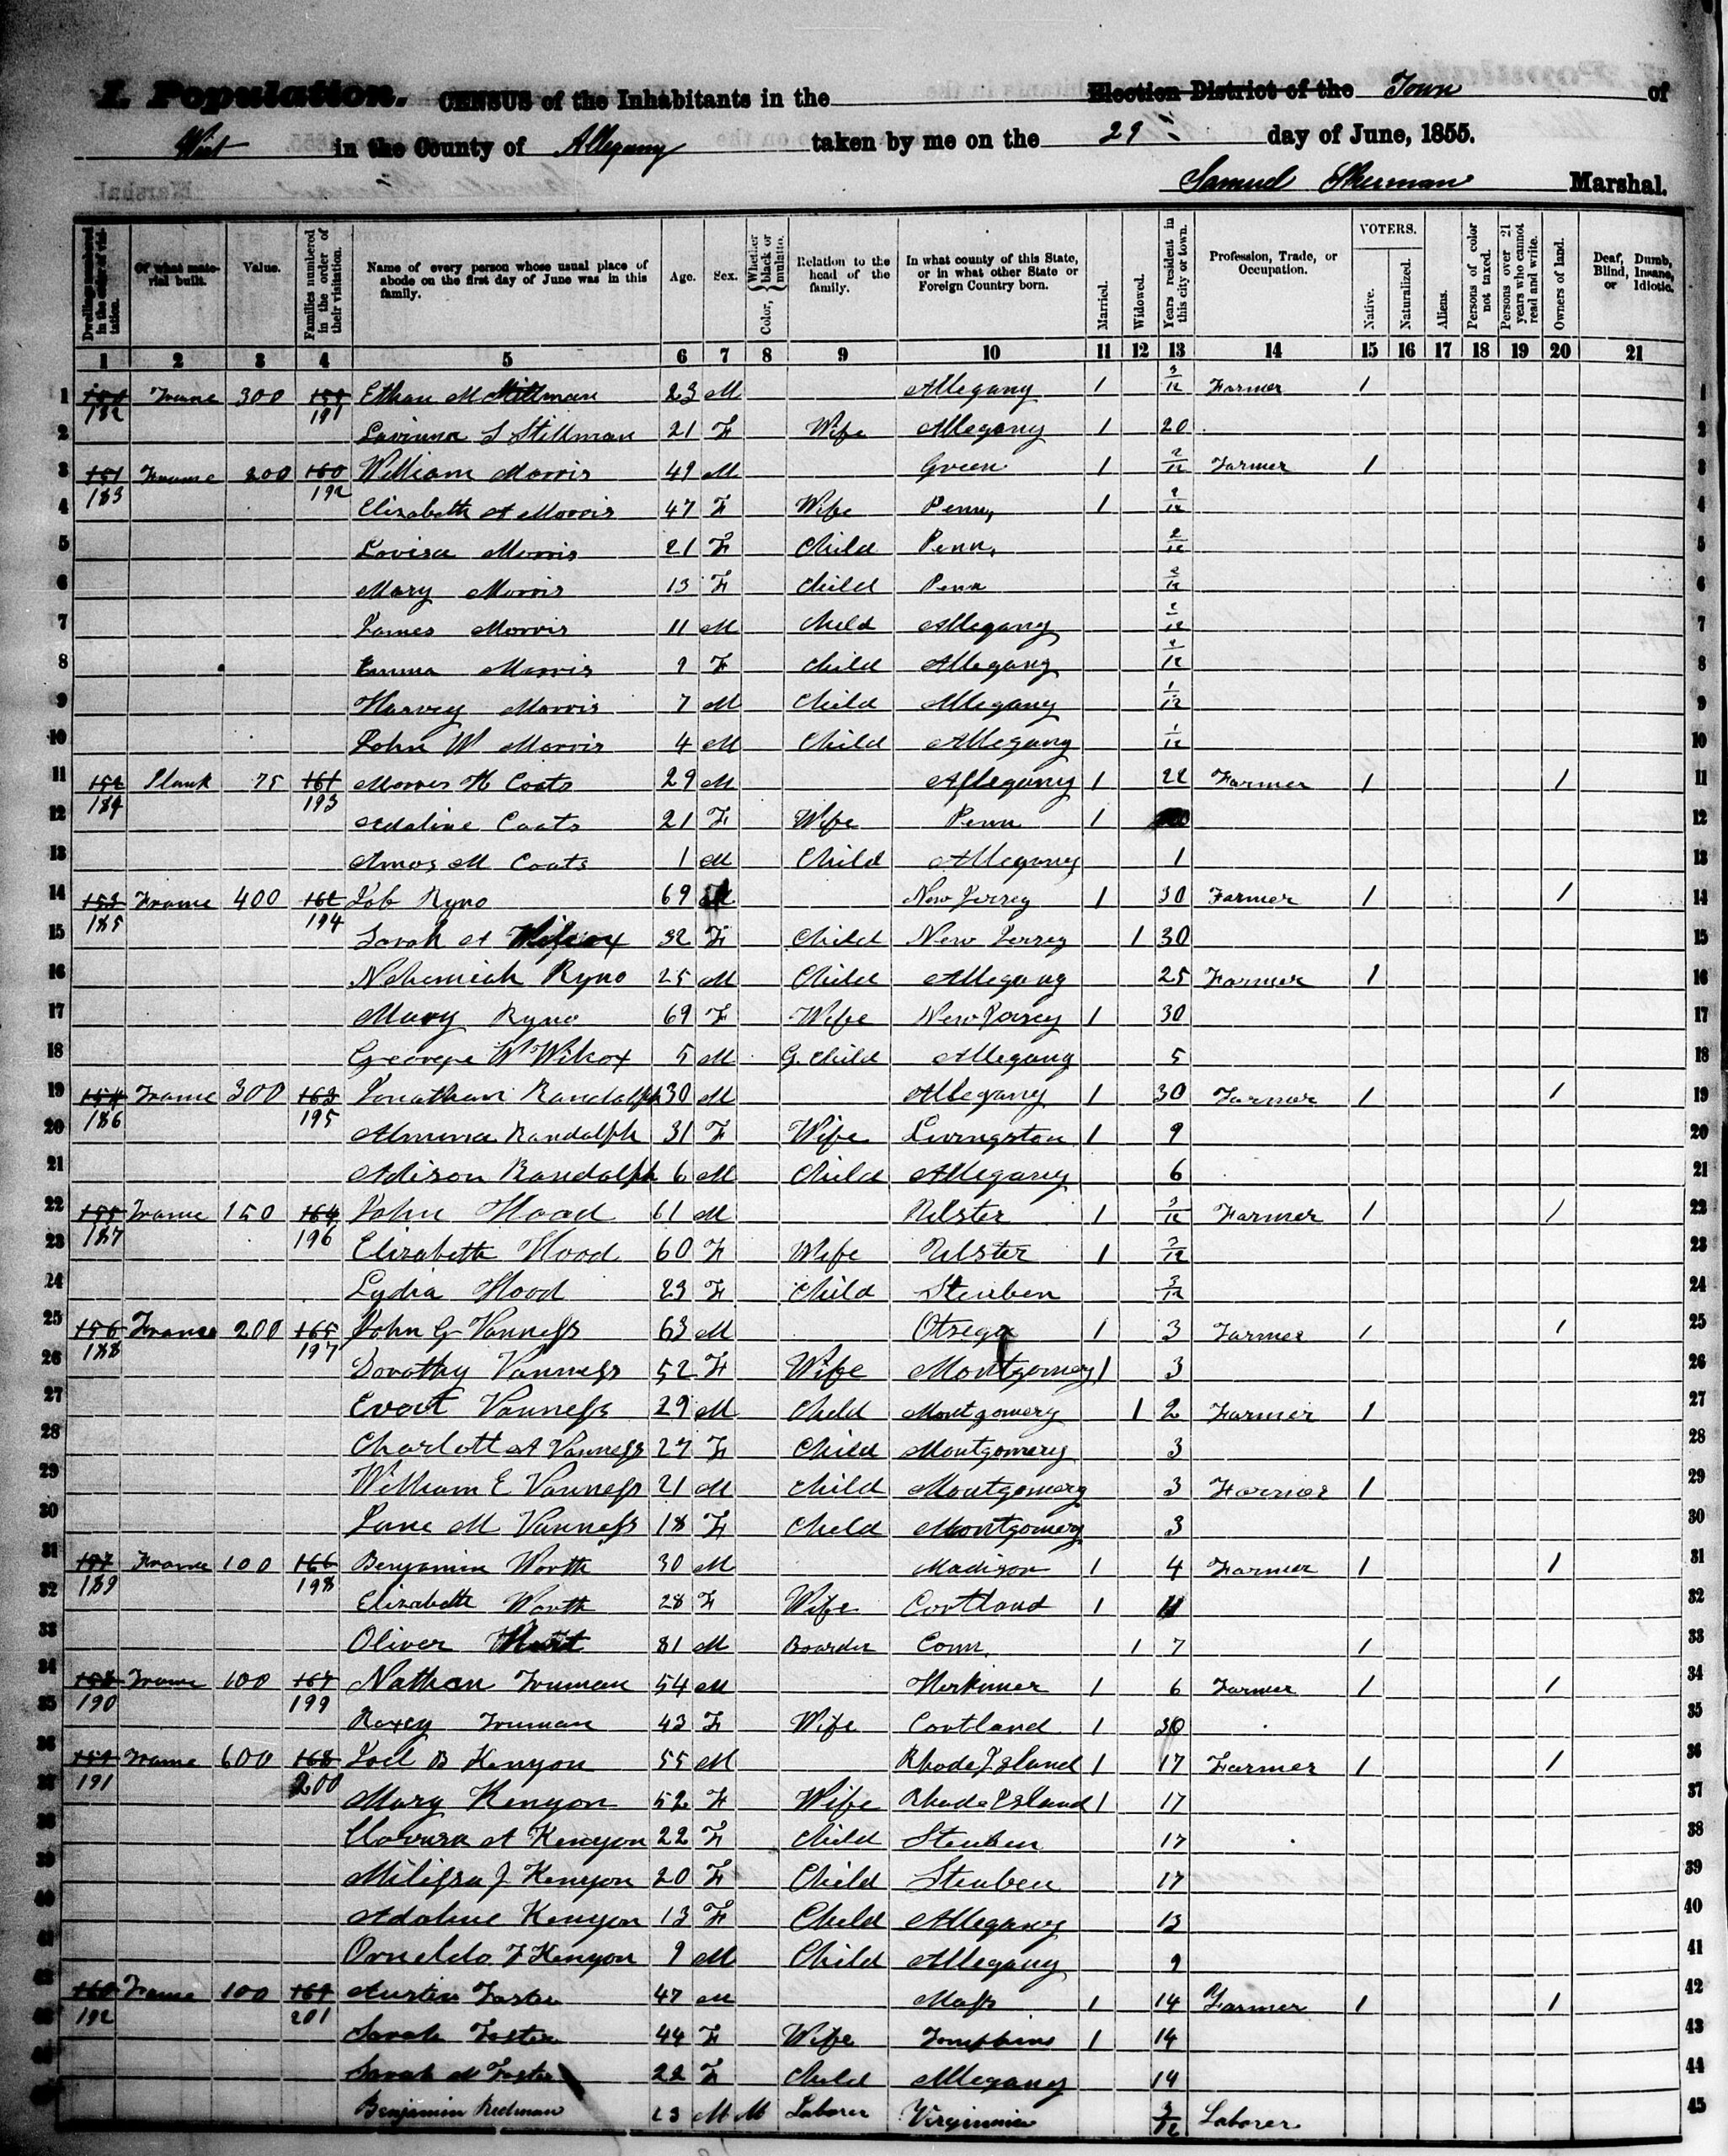 I. Population. CENSUS of the Inhabitants in the Election District of the Town of
Wirt in the County of Allegany taken by me on the 29 day of June, 1855.
Samuel Sherman Marshal.
Dwellings numbered in the order of visitation. Of what material built. Value. Families numbered in the order of their visitation. Name of every person whose usual place of abode on the first day of June was in this family. Age. Sex. Color, Whether black or mulatto. Relation to the head of the family. In what county of this State, or in what other State or Foreign Country born. Married. Widowed. Years resident in this city or town. Profession, Trade, or Occupation. VOTERS. Native. Naturalized. Aliens. Persons of color not taxed. Persons over 21 years who cannot read and write. Owners of land. Deaf, Dumb, Blind, Insane, or Idiotic.
1 2 3 4 5 6 7 8 9 10 11 12 13 14 15 16 17 18 19 20 21
1 182 Frame 300 159 191 Ethan M Stillman 23 M Allegany 1 3/12 Farmer 1 1
2 Lavinna S Stillman 21 F Wife Allegany 1 20 2
3 151 183 Frame 200 160 192 William Morris 49 M Green 1 2/12 Farmer 1 3
4 Elizabeth A Morris 47 F Wife Penn, 1 2/12 4
5 Lovisa Morris 21 F Child Penn, 2/12 5
6 Mary Morris 13 F Child Penn 2/12 6
7 James Morris 11 M Child Allegany 2/12 7
8 Emma Morris 9 F Child Allegany 2/12 8
9 Harvey Morris 7 M Child Allegany 1/12 9
10 John W Morris 4 M Child Allegany 1/12 10
11 152 184 Plank 75 161 193 Morris H Coats 29 M Allegany 1 22 Farmer 1 1 11
12 Adaline Coats 21 F Wife Penn 1 12
13 Amos M Coats 1 M Child Allegany 1 13
14 153 185 Frame 400 162 194 Job Ryno 69 M New Jersey 1 30 Farmer 1 1 14
15 Sarah A Wilcox 32 F Child New Jersey 1 30 15
16 Nehemiah Ryno 25 M Child Allegany 25 Farmer 1 16
17 Mary Ryno 69 F Wife New Jersey 1 30 17
18 George W Wilcox 5 M G. Child Allegany 5 18
19 154 186 Frame 300 163 195 Jonathan Randalph 30 M Allegany 1 30 Farmer 1 1 19
20 Almina Randalph 31 F Wife Livingston 1 9 20
21 Adison Randalph 6 M Child Allegany 6 21
22 155 187 Frame 150 164 196 John Hood 61 M Ulster 1 3/12 Farmer 1 1 22
23 Elizabeth Hood 60 F Wife Ulster 1 3/12 23
24 Lydia Hood 23 F Child Steuben 3/12 24
25 156 188 Frame 200 165 197 John G Vanness 63 M Otsego 1 3 Farmer 1 1 25
26 Dorothy Vanness 52 F Wife Montgomery 1 3 26
27 Evert Vanness 29 M Child Montgomery 1 2 Farmer 1 27
28 Charlott A Vanness 27 F Child Montgomery 3 28
29 William E Vanness 21 M Child Montgomery 3 Farmer 1 29
30 Jane M Vanness 18 F Child Montgomery 3 30
31 157 189 Frame 100 166 198 Benjamin Worth 30 M Madison 1 4 Farmer 1 1 31
32 Elizabeth Worth 28 F Wife Cortland 1 32
33 Oliver 81 M Boarder Conn. 1 7 1 33
34 158 190 Frame 100 167 199 Nathan Truman 54 M Herkimer 1 6 Farmer 1 1 34
35 Roxey Truman 43 F Wife Cortland 1 30 35
36 159 191 Frame 600 168 200 Joel B Kenyon 55 M Rhode Island 1 17 Farmer 1 1 36
37 Mary Kenyon 52 F Wife Rhode Island 1 17 37
38 A Kenyon 22 F Child Steuben 17 38
39 Milissa J Kenyon 20 F Child Steuben 17 39
40 Adaline Kenyon 13 F Child Allegany 13 40
41 Orneldo F Kenyon 9 M Child Allegany 9 41
42 160 192 Frame 100 169 201 Austin Foster 47 M Mass 1 14 Farmer 1 1 42
43 Sarah Foster 44 F Wife Tompkins 1 14 43
44 Sarah M Foster 22 F Child Allegany 14 44
45 Benjamin Redman 23 M M Laborer Virginnia 3/12 Laborer 45